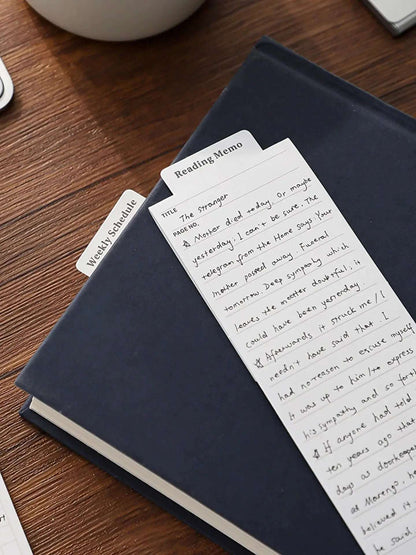 Reading Memo
Weekly Schedule
TITLE The Stranger
PAGE NO.
☆ Mother died today. Or maybe
yesterday. I can't be sure. The
telegram from the Home says Your
mother passed away. Funeral
tomorrow. Deep sympathy which
leaves the matter doubtful; it
could have been yesterday
☆ Afterwards it struck me / I
needn't have said that I
had no reason to excuse myself
it was up to him / to express
his sympathy and so forth
☆ If anyone had told
ten years ago that
days as doorkeeper
at Marengo, he
believed it
he said